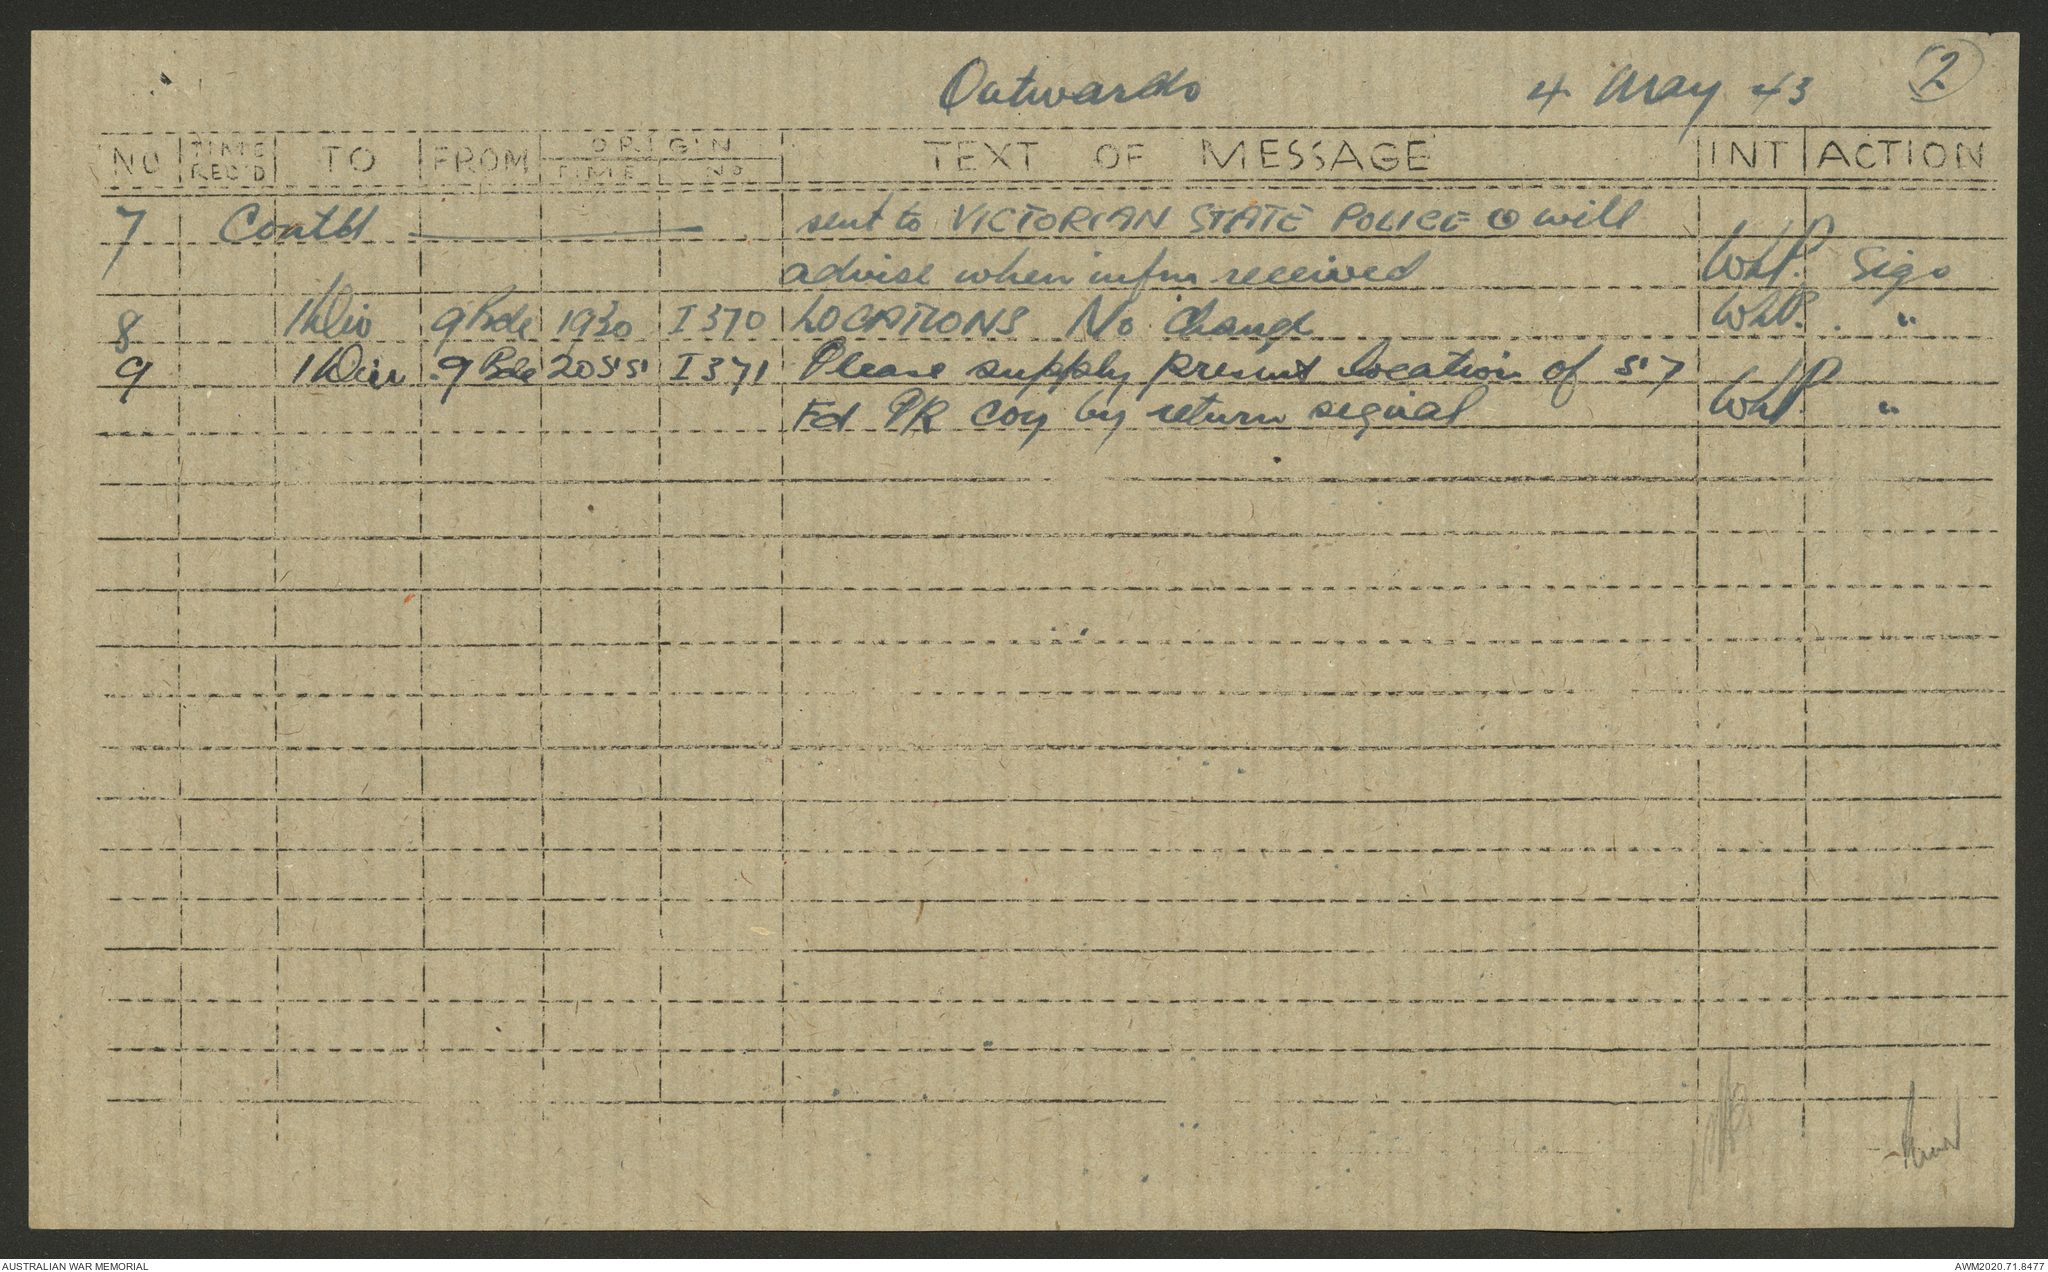 Outwards 4 May 43 2
NO TIME REC'D TO FROM ORIGIN TIME NO TEXT OF MESSAGE INT ACTION
7 Contd sent to VICTORIAN STATE POLICE will
advise when infm received WhP. Sigs
8 1 Div 9 Bde 1930 I 370 LOCATIONS No Change WhP. "
9 1 Div 9 Bde 2055 I 371 Please supply present location of 57
Fd PK Coy by return signal WhP "
AUSTRALIAN WAR MEMORIAL AWM2020.71.8477